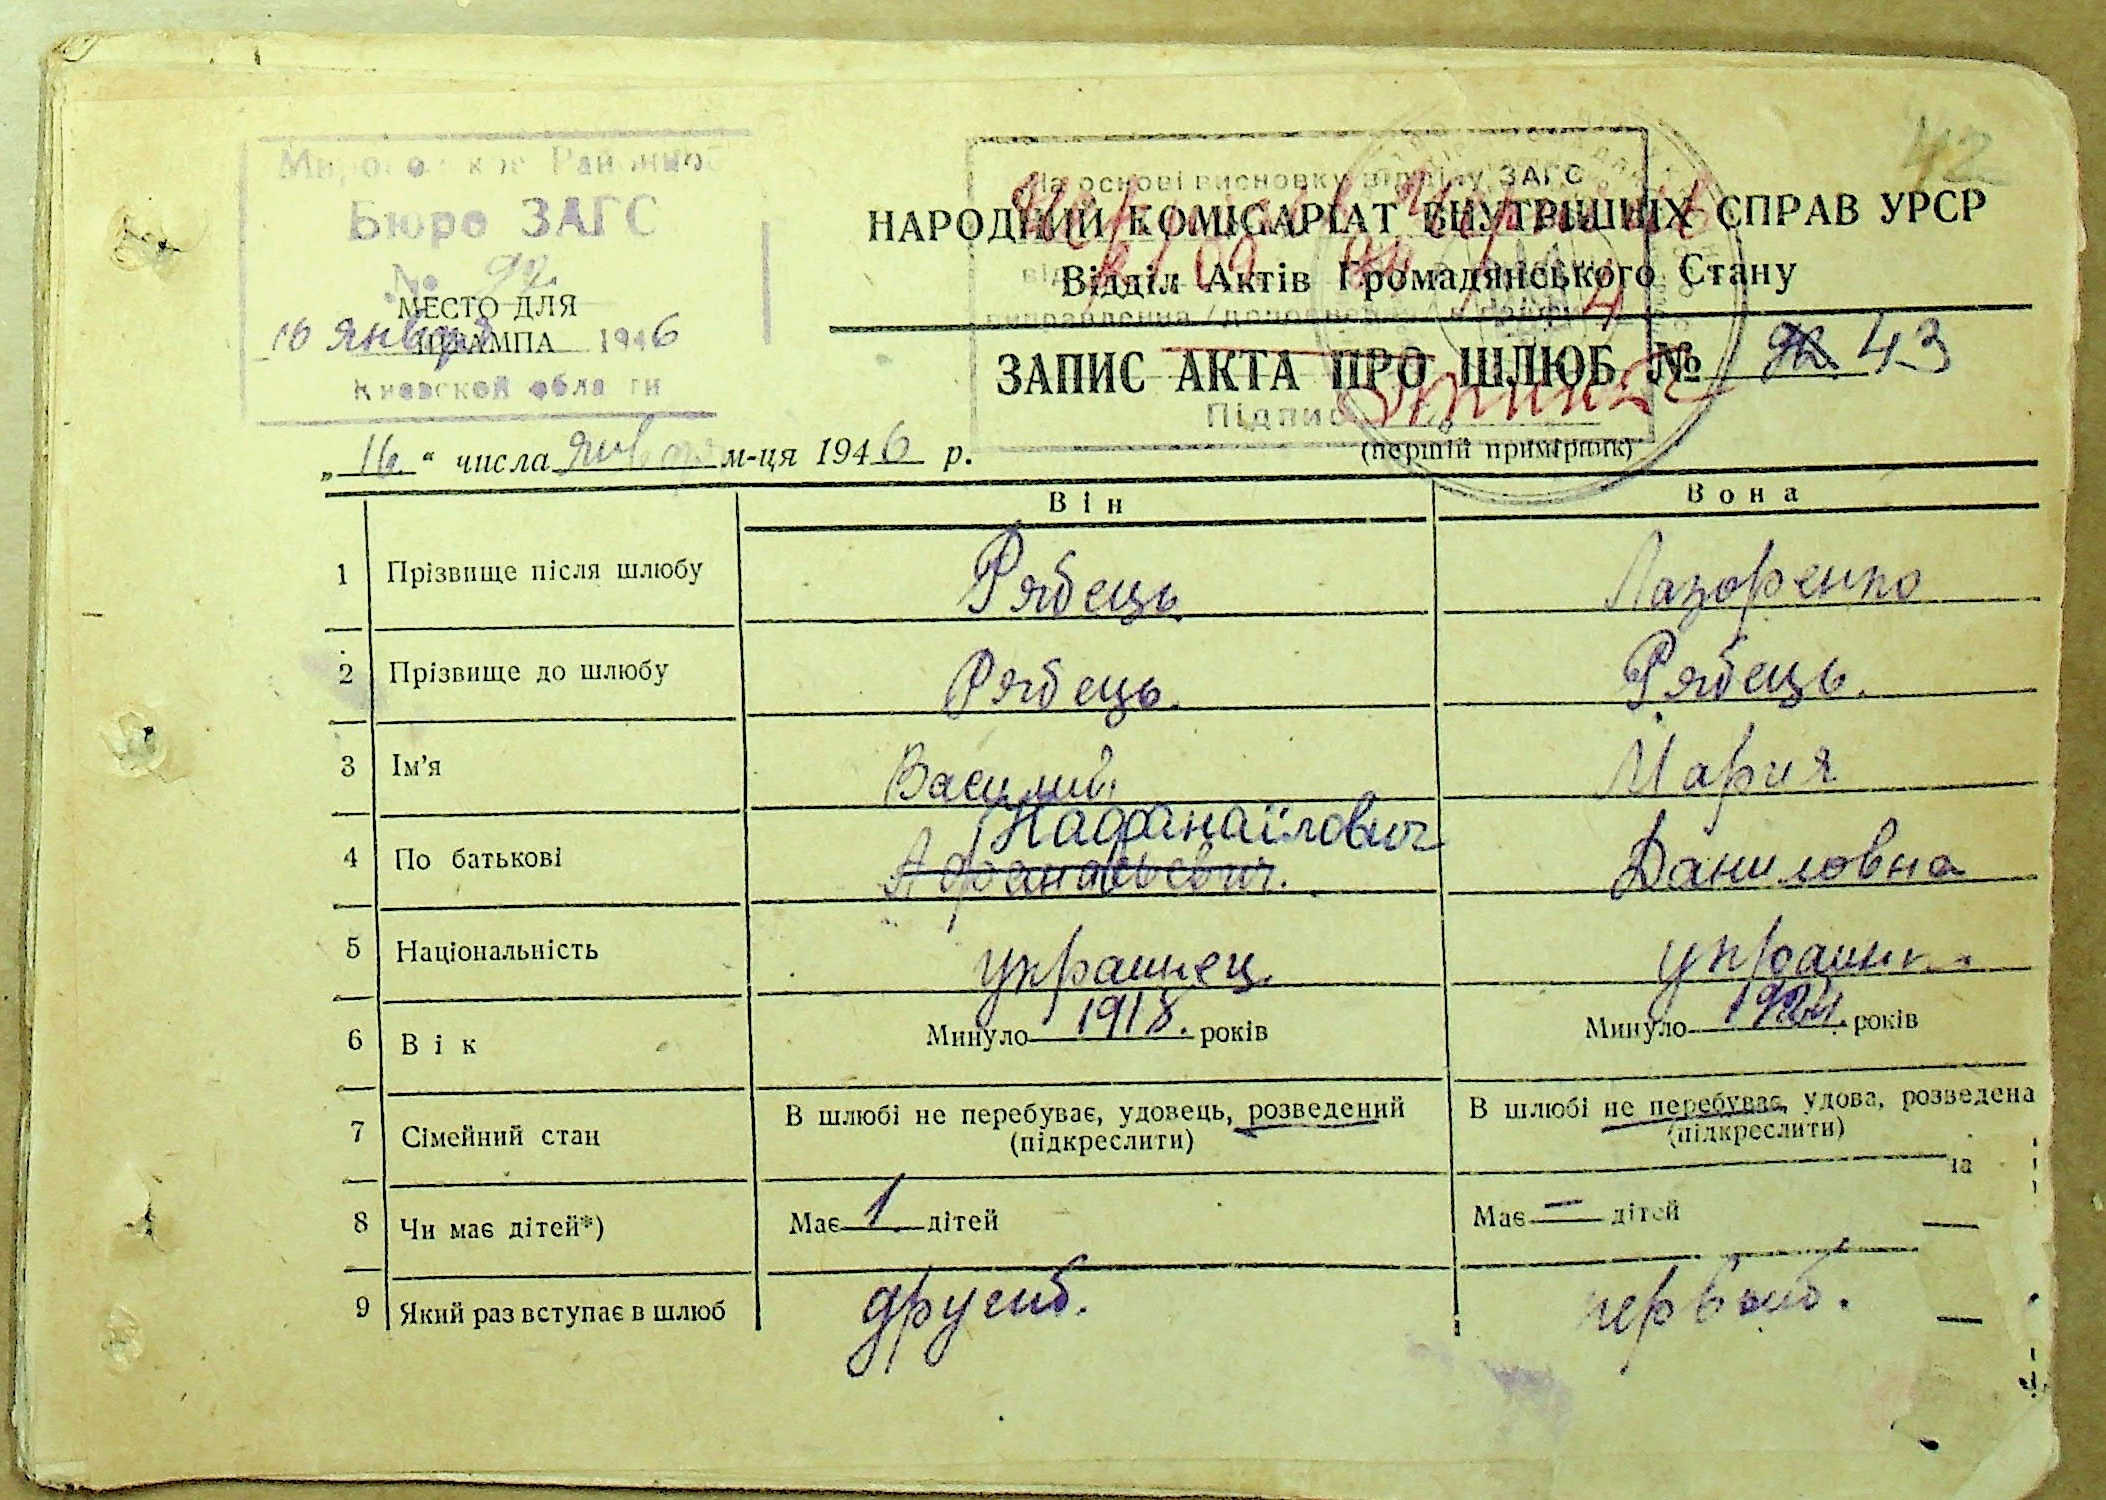 42
Бюро ЗАГС
№ 92
МЕСТО ДЛЯ
ШТАМПА
16 января 1946
Киевской обла ти
На основі висновку відділу ЗАГС
НАРОДНИЙ КОМІСАРІАТ ВНУТРІШНІХ СПРАВ УРСР
Відділ Актів Громадянського Стану
ЗАПИС АКТА ПРО ШЛЮБ № 92 43
Підпис
(перший примірник)
„16.“ числа января м-ця 1946 р.
Він Вона
1 Прізвище після шлюбу Рябець Лазоренко
2 Прізвище до шлюбу Рябець. Рябець.
3 Ім'я Василий Мария
Нафанаїлович
4 По батькові Афанасьевич. Даниловна
5 Національність украинец.
6 Вік Минуло 1918. років Минуло років
7 Сімейний стан В шлюбі не перебуває, удовець, розведений В шлюбі не перебуває, удова, розведена
(підкреслити) (підкреслити)
8 Чи має дітей*) Має 1 дітей Має — дітей
9 Який раз вступає в шлюб первый.